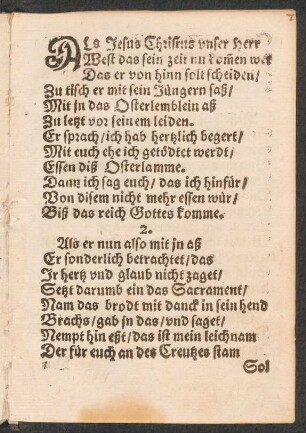 ALs Jesus Christus vnser Herr
West das sein zeit nu kom̃en wer
Das er von hinn solt scheiden/
Zu tisch er mit sein Jüngern saß/
Mit jn das Osterlemblein aß
Zu letzt vor seinem leiden.
Er sprach/ ich hab hertzlich begert/
Mit euch ehe ich getödtet werdt/
Essen diß Osterlamme.
Dann ich sag euch/ das ich hinfür/
Von disem nicht mehr essen wür/
Biß das reich Gottes komme.
2.
Als er nun also mit jn aß
Er sonderlich betrachtet/ das
Ir hertz vnd glaub nicht zaget/
Setzt darumb ein das Sacrament/
Nam das brodt mit danck in sein hend
Brachs/ gab jn das/ vnd saget/
Nempt hin eßt/ das ist mein leichnam
Der für euch an des Creutzes stam
Sol